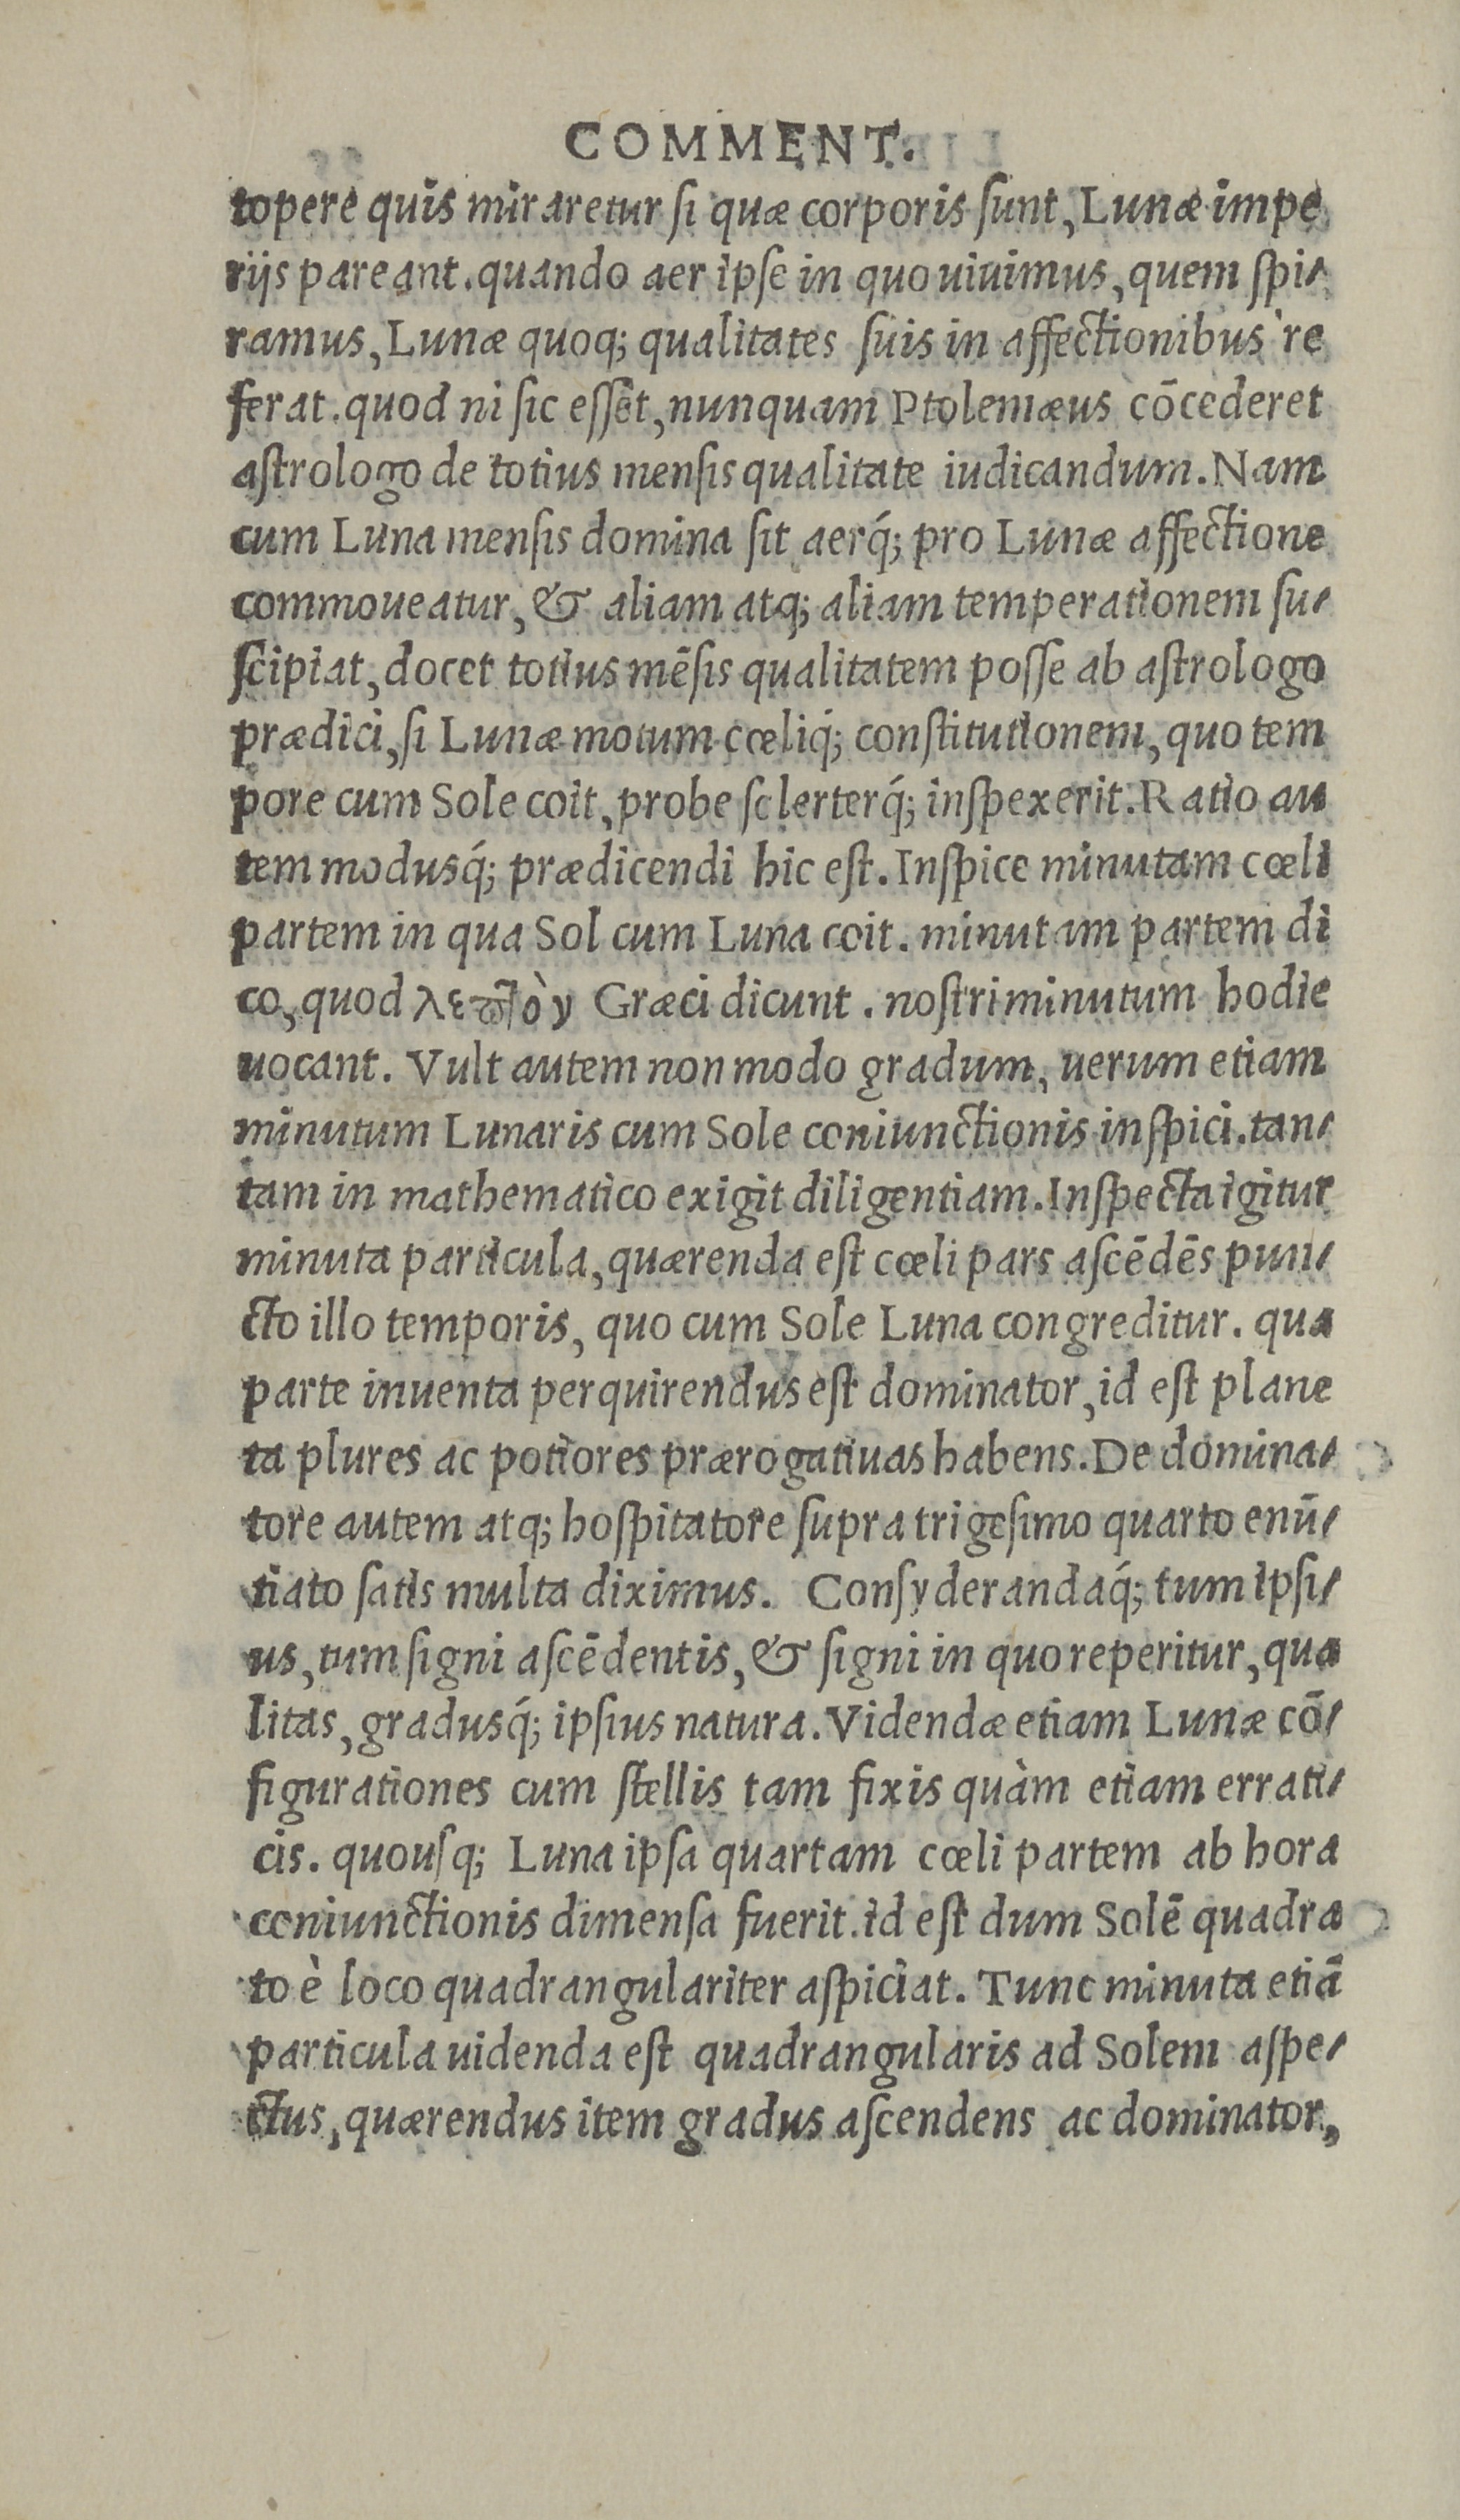 COMMENT.
topere quis miraretur ſi quæ corporis ſunt, Lunæ impe
rijs pareant. quando aer ipſe in quo uiuimus, quem ſpi-
ramus, Lunæ quoq; qualitates ſuis in affectionibus re
ferat. quod ni ſic eſſet, nunquam Ptolemæus cōcederet
aſtrologo de totius menſis qualitate iudicandum. Nam
cum Luna menſis domina ſit aerq́; pro Lunæ affectione
commoueatur, & aliam atq; aliam temperationem ſu-
ſcipiat, docet totius mēſis qualitatem poſſe ab aſtrologo
prædici, ſi Lunæ motum cœliq́; conſtitutionem, quo tem
pore cum Sole coit, probe ſclerterq́; inſpexerit. Ratio au
tem modusq́; prædicendi hic eſt. Inſpice minutam cœli
partem in qua Sol cum Luna coit. minutam partem di
co, quod λεπτὸν Græci dicunt. noſtri minutum hodie
uocant. Vult autem non modo gradum, uerum etiam
minutum Lunaris cum Sole coniunctionis inſpici. tan-
tam in mathematico exigit diligentiam. Inſpecta igitur
minuta particula, quærenda eſt cœli pars aſcēdēs pun-
cto illo temporis, quo cum Sole Luna congreditur. qua
parte inuenta perquirendus eſt dominator, id eſt plane
ta plures ac potiores prærogatiuas habens. De domina-
tore autem atq; hoſpitatore ſupra trigeſimo quarto enū-
tiato ſatis multa diximus. Conſyderandaq́; tum ipſi-
us, tum ſigni aſcēdentis, & ſigni in quo reperitur, qua
litas, gradusq́; ipſius natura. Videndæ etiam Lunæ cō-
figurationes cum ſtellis tam fixis quàm etiam errati-
cis. quouſq; Luna ipſa quartam cœli partem ab hora
coniunctionis dimenſa fuerit. id eſt dum Solē quadra
to è loco quadrangulariter aſpiciat. Tunc minuta etiā
particula uidenda eſt quadrangularis ad Solem aſpe-
ctus, quærendus item gradus aſcendens ac dominator,